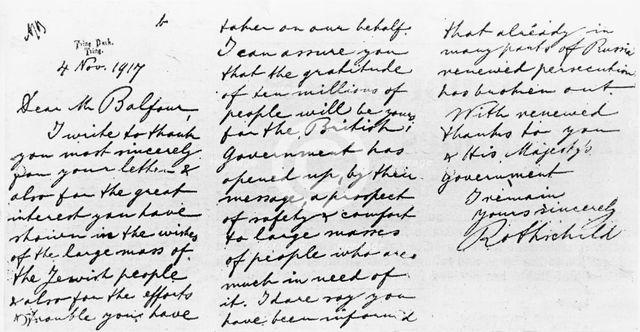 Tring Park,
Tring.
4 Nov. 1917
Dear Mr Balfour,
I write to thank
you most sincerely
for your letter &
also for the great
interest you have
shown in the wishes
of the large mass of
the Jewish people
& also for the efforts
& trouble you have
taken on our behalf.
I can assure you
that the gratitude
of ten millions of
people will be yours
for the British
Government has
opened up, by their
message, a prospect
of safety & comfort
to large masses
of people who are
much in need of
it. I dare say you
have been informed
that already in
many parts of Russia
renewed persecution
has broken out
With renewed
thanks to you
& His Majesty's
Government
I remain
Yours sincerely
Rothschild